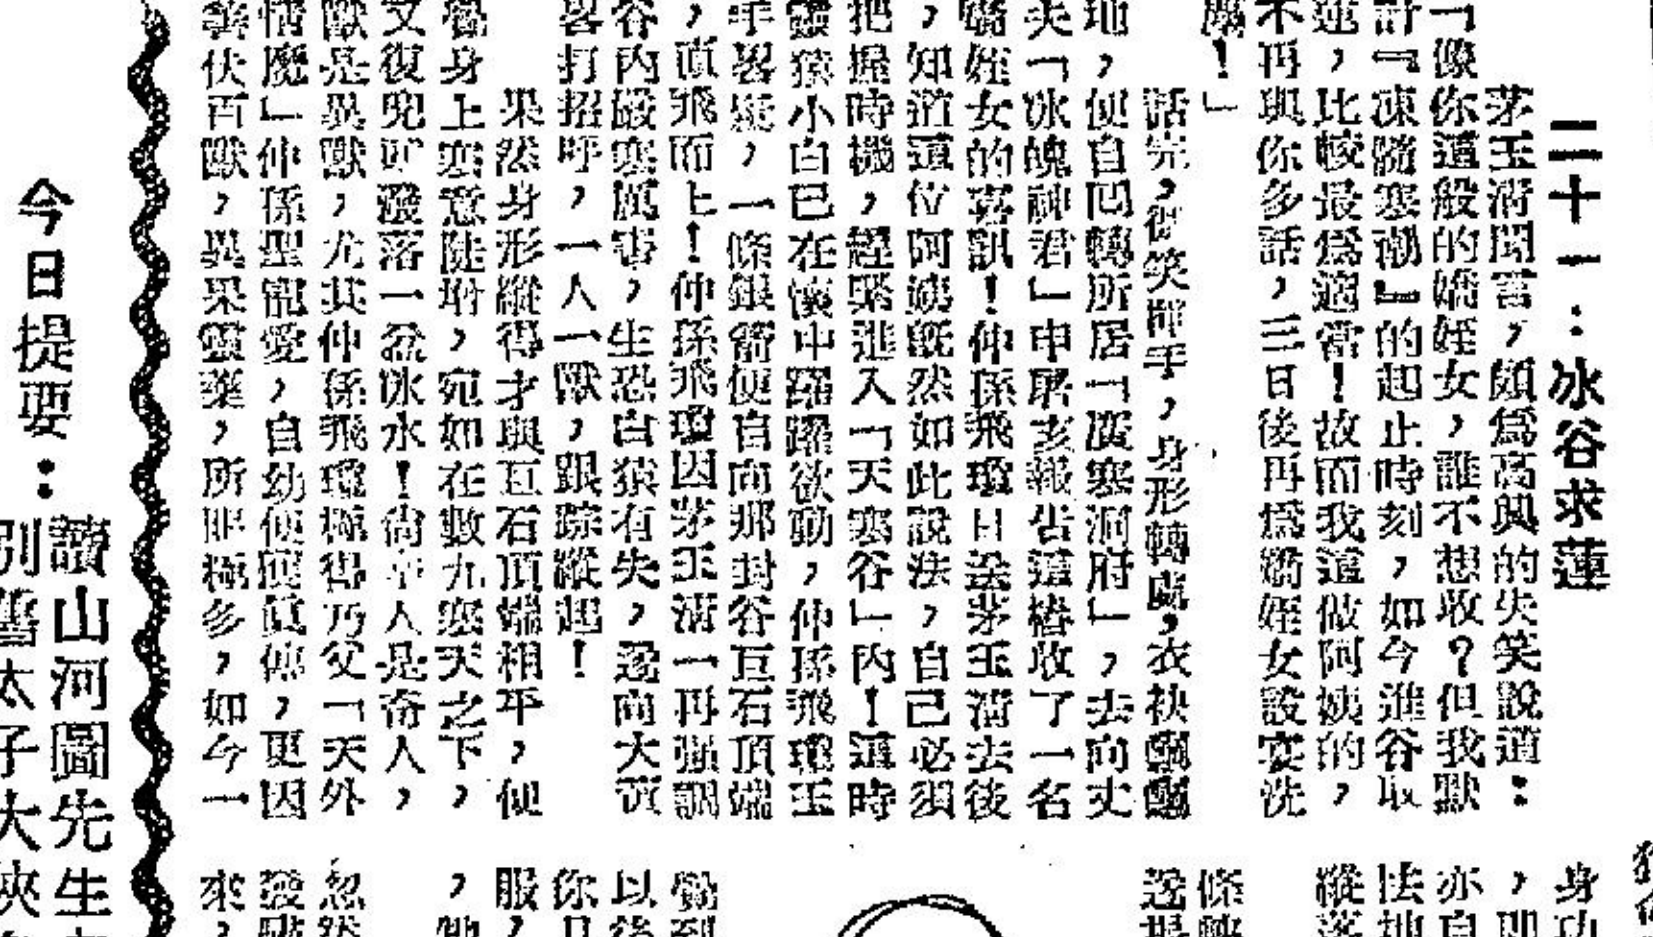 二十一：冰谷求蓮
茅玉清聞言，頗爲高興的失笑說道：
「像你這般的嬌姪女，誰不想收？但我默
計『凍髓寒潮』的起止時刻，如今進谷取
蓮，比較最爲適當！故而我這做阿姨的，
不再與你多話，三日後再爲嬌姪女設宴洗
塵！」
話完，微笑揮手，身形轉處，衣袂飄飄
地，便自回轉所居「廣寒洞府」，去向丈
夫「冰魄神君」申屠亥報告這樁收了一名
嬌姪女的喜訊！仲孫飛瓊目送茅玉清去後
，知道這位阿姨既然如此說法，自己必須
把握時機，趕緊進入「天寒谷」內！這時
靈猿小白已在懷中躍躍欲動，仲孫飛瓊玉
手畧鬆，一條銀箭便自向那封谷巨石頂端
，直飛而上！仲孫飛瓊因茅玉清一再强調
谷內嚴寒厲害，生恐白猿有失，遂向大黃
畧打招呼，一人一獸，跟踪縱起！
果然身形縱得才與巨石頂端相平，便
覺身上寒意陡增，宛如在數九寒天之下，
又復兜頭潑落一盆冰水！尚幸人是奇人，
獸是異獸，尤其仲孫飛瓊極得乃父「天外
情魔」仲孫聖寵愛，自幼便獲眞傳，更因
馴伏百獸，異果靈藥，所服極多，如今一
身功
，則
亦自
怯地
縱落
條轉
遂提
覺到
以後
你且
服，
，她
忽然
發點
來，
今日提要：
讀山河圖先生
別
太子大俠